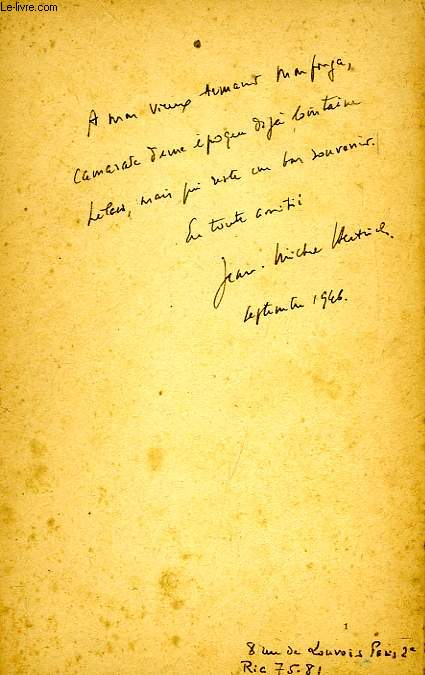 Le-livre.com
A mon vieux Armand
Camarade d'une époque déjà lointaine
hélas, mais qui reste un bon souvenir.
En toute amitié
Jean-Michel Hertrich.
septembre 1946.
1
8 rue de Louvois Paris 2e
Ric 75.81